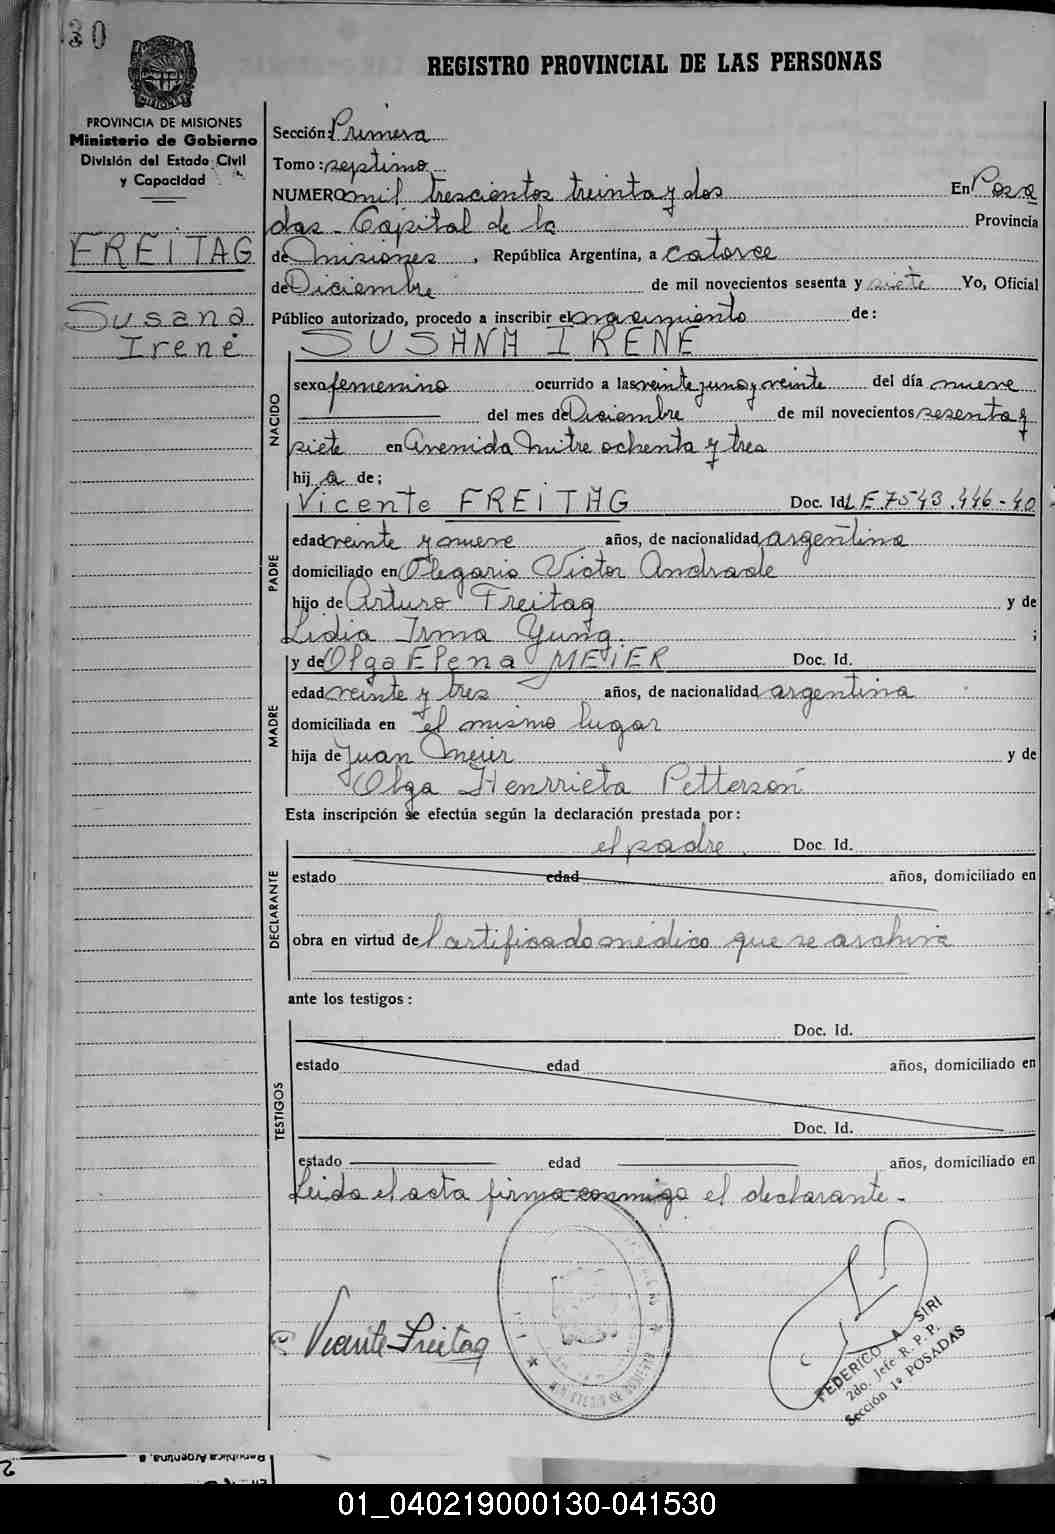 30
REGISTRO PROVINCIAL DE LAS PERSONAS
PROVINCIA DE MISIONES
Ministerio de Gobierno
División del Estado Civil
y Capacidad
FREITAG
Susana
Irene
Sección: Primera
Tomo: septimo
NUMERO mil trescientos treinta y dos En Posa
das - Capital de la Provincia
de Misiones, República Argentina, a catorce
de Diciembre de mil novecientos sesenta y siete Yo, Oficial
Público autorizado, procedo a inscribir el nacimiento de:
SUSANA IRENE
NACIDO
sexo femenino ocurrido a las veinte y uno y veinte del día nueve
del mes de Diciembre de mil novecientos sesenta y
siete en Avenida Mitre ochenta y tres
hij a de;
PADRE
Vicente FREITAG Doc. Id. L E. 7543.446-40
edad veinte y nueve años, de nacionalidad argentina
domiciliado en Olegario Victor Andrade
hijo de Arturo Freitag y de
Lidia Irma Yung. ;
MADRE
y de Olga Elena MEIER Doc. Id.
edad veinte y tres años, de nacionalidad argentina
domiciliada en el mismo lugar
hija de Juan Meier y de
Olga Henrrieta Petterson
Esta inscripción se efectúa según la declaración prestada por:
DECLARANTE
el padre. Doc. Id.
estado edad años, domiciliado en
obra en virtud del certificado médico que se archiva
ante los testigos:
TESTIGOS
Doc. Id.
estado edad años, domiciliado en
Doc. Id.
estado edad años, domiciliado en
Leida el acta firma conmigo el declarante.-
Vicente Freitag
MINISTERIO DE GOBIERNO
FEDERICO A SIRI
2do. Jefe R. P. P.
Sección 1ª POSADAS
República Argentina, a
En
2
01_040219000130-041530